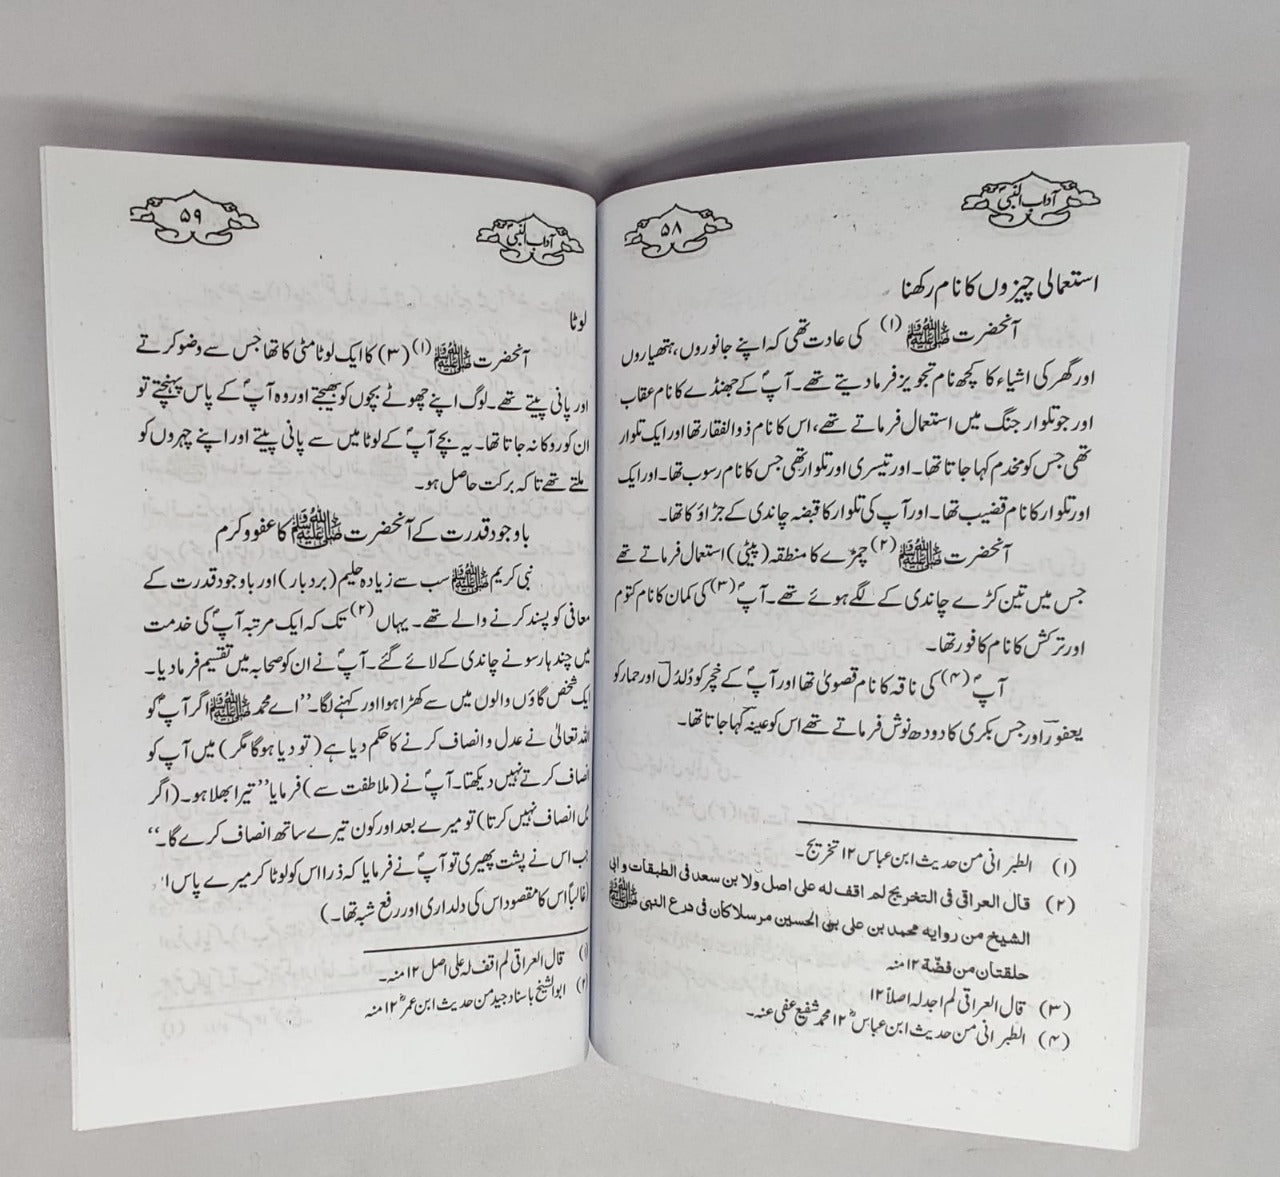 آداب النبیؐ
۵۸
استعمالی چیزوں کا نام رکھنا
آنحضرت ﷺ (۱) کی عادت تھی کہ اپنے جانوروں، ہتھیاروں
اور گھر کی اشیاء کا کچھ نام تجویز فرما دیتے تھے۔ آپؐ کے جھنڈے کا نام عقاب
اور جو تلوار جنگ میں استعمال فرماتے تھے، اس کا نام ذوالفقار تھا اور ایک تلوار
تھی جس کو مخدم کہا جاتا تھا۔ اور تیسری اور تلوار تھی جس کا نام رسوب تھا۔ اور ایک
اور تلوار کا نام قضیب تھا۔ اور آپ کی تلوار کا قبضہ چاندی کے جڑاؤ کا تھا۔
آنحضرت ﷺ (۲) چمڑے کا منطقہ (پیٹی) استعمال فرماتے تھے
جس میں تین کڑے چاندی کے لگے ہوئے تھے۔ آپؐ (۳) کی کمان کا نام کتوم
اور ترکش کا نام کافور تھا۔
آپؐ (۴) کی ناقہ کا نام قصویٰ تھا اور آپؐ کے خچر کو دُلدُل اور حمار کو
یعفور اور جس بکری کا دودھ نوش فرماتے تھے اس کو عینہ کہا جاتا تھا۔
(۱) الطبرانی من حدیث ابن عباس ۱۲ تخریج۔
(۲) قال العراقی فی التخریج لم اقف له علی اصل ولا بن سعد فی الطبقات و ابی
الشیخ من روایه محمد بن علی بن الحسین مرسلا کان فی درع النبی ﷺ
حلقتان من فضّة ۱۲ منه
(۳) قال العراقی لم اجد له اصلاً ۱۲
(۴) الطبرانی من حدیث ابن عباسؓ ۱۲ محمد شفیع عفی عنہ۔
آداب النبیؐ
۵۹
لوٹا
آنحضرت ﷺ (۱) (۳) کا ایک لوٹا مٹی کا تھا جس سے وضو کرتے
اور پانی پیتے تھے۔ لوگ اپنے چھوٹے بچوں کو بھیجتے اور وہ آپؐ کے پاس پہنچتے تو
ان کو روکا نہ جاتا تھا۔ یہ بچے آپؐ کے لوٹا میں سے پانی پیتے اور اپنے چہروں کو
ملتے تھے تاکہ برکت حاصل ہو۔
باوجود قدرت کے آنحضرت ﷺ کا عفو و کرم
نبی کریم ﷺ سب سے زیادہ حلیم (بردبار) اور باوجود قدرت کے
معافی کو پسند کرنے والے تھے۔ یہاں (۲) تک کہ ایک مرتبہ آپؐ کی خدمت
میں چند ہار سونے چاندی کے لائے گئے۔ آپؐ نے ان کو صحابہ میں تقسیم فرما دیا۔
ایک شخص گاؤں والوں میں سے کھڑا ہوا اور کہنے لگا۔ ’’اے محمد ﷺ اگر آپؐ کو
اللہ تعالیٰ نے عدل و انصاف کرنے کا حکم دیا ہے (تو دیا ہوگا مگر) میں آپ کو
انصاف کرتے نہیں دیکھتا۔ آپؐ نے (ملاطفت سے) فرمایا ’’تیرا بھلا ہو۔ (اگر
انصاف نہیں کرتا) تو میرے بعد اور کون تیرے ساتھ انصاف کرے گا۔‘‘
جب اس نے پشت پھیری تو آپؐ نے فرمایا کہ ذرا اس کو لوٹا کر میرے پاس
(غالباً اس کا مقصود اس کی دلداری اور رفع شبہ تھا۔)
(۱) قال العراقی لم اقف له علی اصل ۱۲ منه۔
(۲) ابو الشیخ باسناد جید من حدیث ابن عمرؓ ۱۲ منه